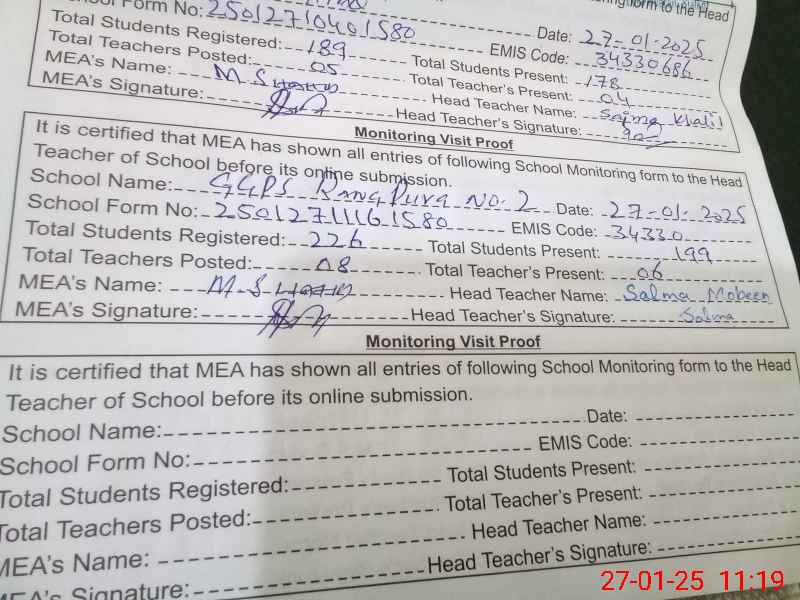 School Form No: 25012710401580 Date: 27-01-2025
Total Students Registered: 189 EMIS Code: 34330686
Total Teachers Posted: 05 Total Students Present: 178
MEA's Name: Total Teacher's Present: 04
MEA's Signature: Head Teacher Name: Sajma Khalil
Head Teacher's Signature:
Monitoring Visit Proof
It is certified that MEA has shown all entries of following School Monitoring form to the Head
Teacher of School before its online submission.
School Name: GGPS Rangpura No. 2 Date: 27-01-2025
School Form No: 25012711161580 EMIS Code: 34330
Total Students Registered: 226 Total Students Present: 199
Total Teachers Posted: 08 Total Teacher's Present: 06
MEA's Name: Head Teacher Name: Salma Mobeen
MEA's Signature: Head Teacher's Signature: Salma
Monitoring Visit Proof
It is certified that MEA has shown all entries of following School Monitoring form to the Head
Teacher of School before its online submission.
School Name: Date:
School Form No: EMIS Code:
Total Students Registered: Total Students Present:
Total Teachers Posted: Total Teacher's Present:
MEA's Name: Head Teacher Name:
MEA's Signature: Head Teacher's Signature:
27-01-25 11:19